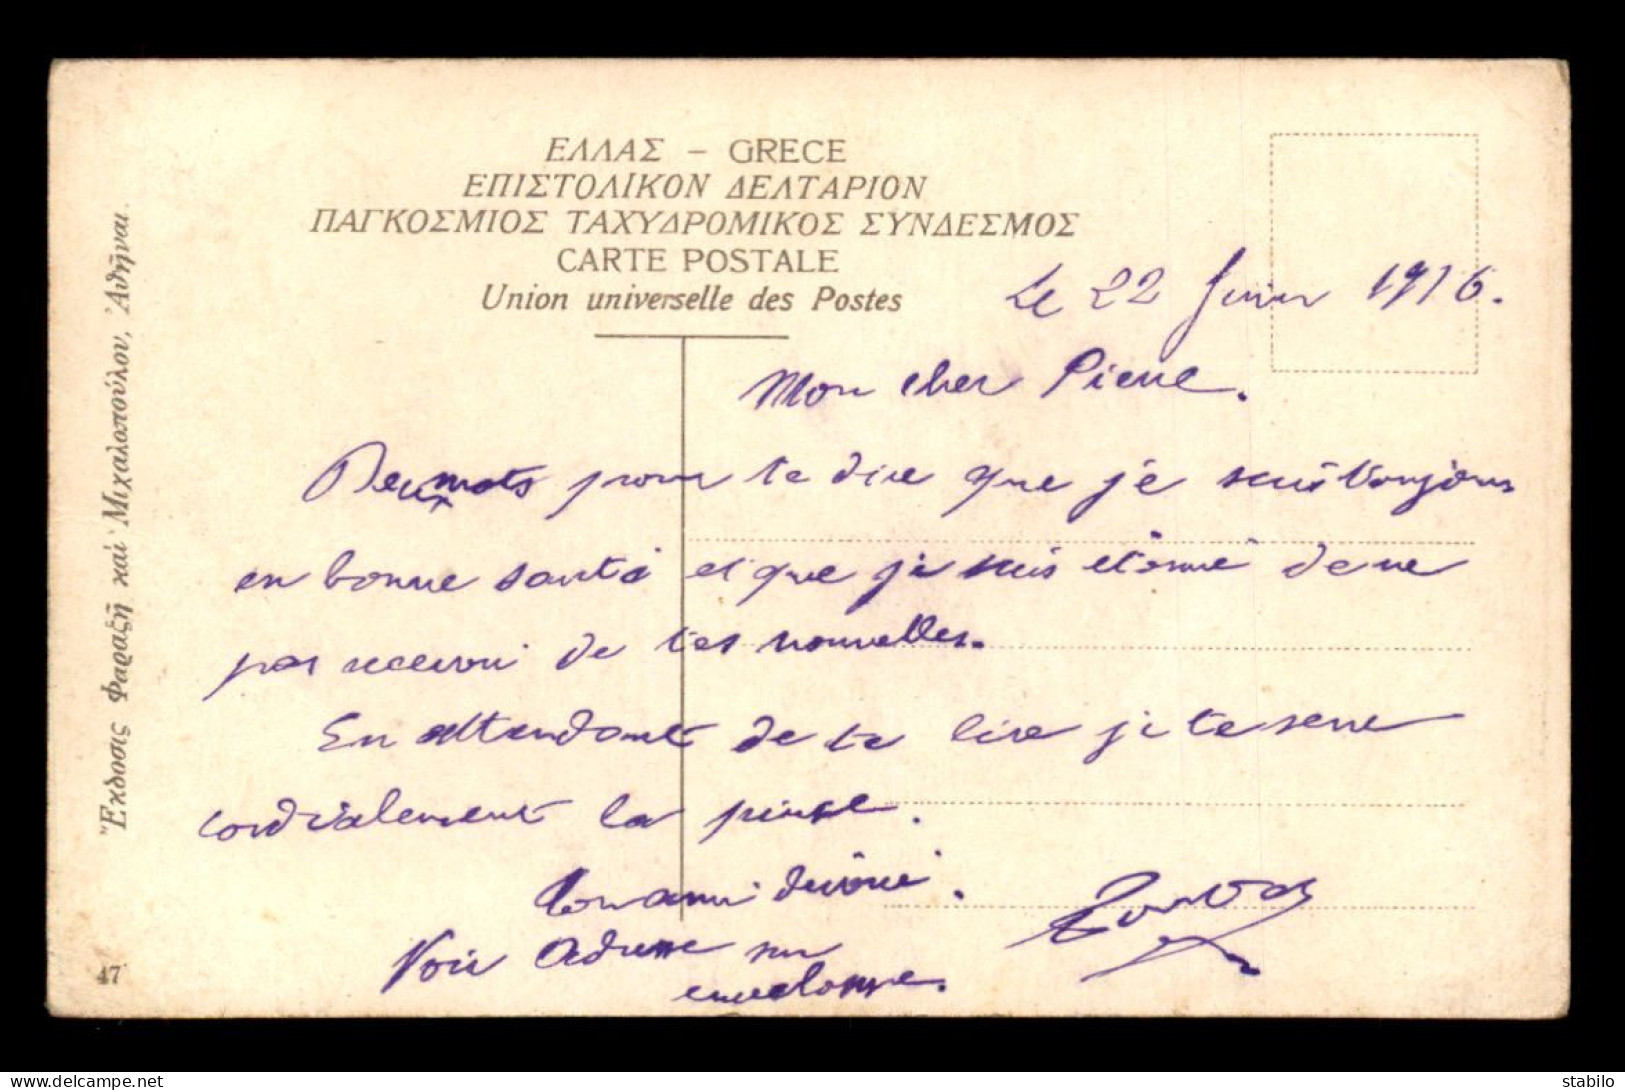 ΕΛΛΑΣ – GRECE
ΕΠΙΣΤΟΛΙΚΟΝ ΔΕΛΤΑΡΙΟΝ
ΠΑΓΚΟΣΜΙΟΣ ΤΑΧΥΔΡΟΜΙΚΟΣ ΣΥΝΔΕΣΜΟΣ
CARTE POSTALE
Union universelle des Postes
Le 22 Juin 1916.
Mon cher Pierre.
Deux mots pour te dire que je suis toujours
en bonne santé et que je suis étonné de ne
pas recevoir de tes nouvelles.
En attendant de te lire je te serre
cordialement la pince.
Ton ami dévoué.
Voir adresse sur
enveloppe.
Ἔκδοσις Φαραζῆ καὶ Μιχαλοπούλου, Ἀθῆναι.
47
delcampe.net
stabilo